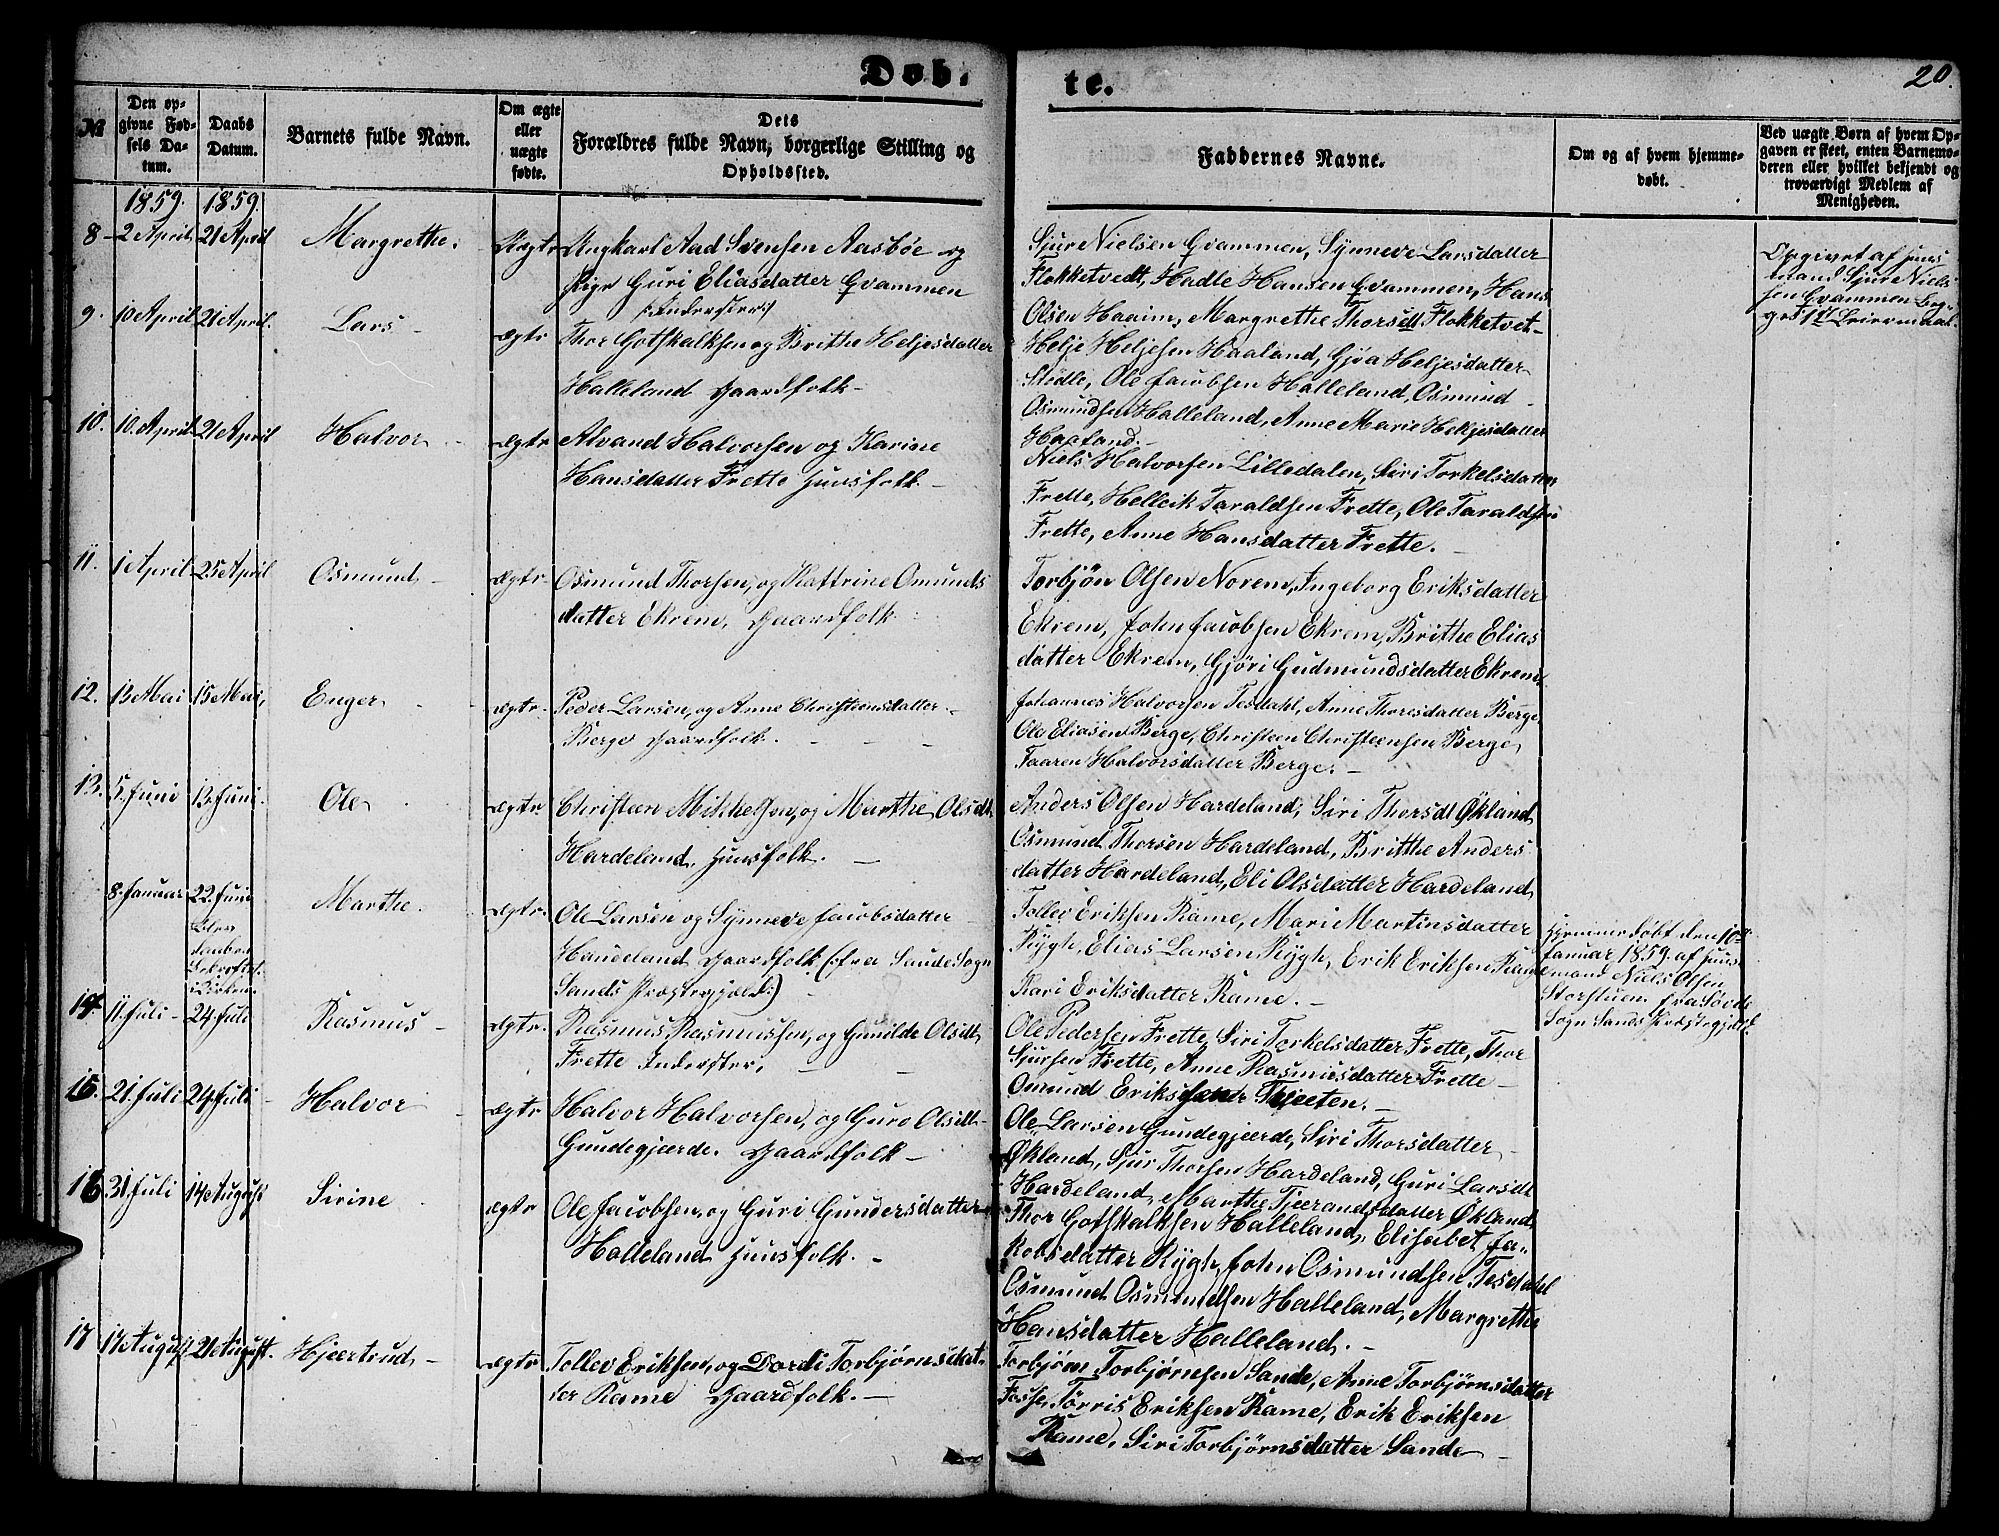 Døb-
te.
20.
№
Den op-
givne Fød-
sels Da-
tum.
Daabs
Datum.
Barnets fulde Navn.
Om ægte
eller
uægte
fødte.
Dets
Forældres fulde Navn, borgerlige Stilling og
Opholdssted.
Faddernes Navne.
Om og af hvem hjemme-
døbt.
Ved uægte Børn af hvem Op-
gaven er skeet, enten Barnemo-
deren eller hvilket bekjendt og
troværdigt Medlem af
Menigheden.
1859. 1859.
8 2 April 21 April Margrethe. Uægte Ungkarl Aad Svensen Aasbøe og
Pige Guri Eliasdatter Qvammen
Sjur Nielsen Qvammen, Synneve Larsdatter
Flokketvedt, Hadle Hansen Qvammen, Hans
Olsen Haaim, Margrethe Thorsdt Flokketvet
Opgivet af huus
mand Sjur Niels
sen Qvammen Beg-
ges 1st Leiermaal.
9. 10 April 21 April. Lars ægte (:Inderster:)
Thor Gotskalksen og Brithe Heljesdatter
Halleland Gaardfolk
Helje Heljesen Haaland, Gjøa Heljesdatter
Stødle, Ole Jacobsen Halleland, Osmund
Osmundsen Halleland, Anne Marie Heljesdatter
Haaland.
10. 10. April 21 April Halvor ægte Alvand Halvorsen og Karine
Hansdatter Frette Huusfolk.
Niels Halvorsen Lilledalen, Siri Torkelsdatter
Frette, Helleik Taraldsen Frette, Ole Taraldsen
Frette, Anne Hansdatter Frette.
11. 1 April 25 April Osmund ægte Osmund Thorsen, og Kattrine Omunds
datter Ekrem, Gaardfolk
Torbjøn Olsen Norem, Ingeborg Eriksdatter
Ekrem, John Jacobsen Ekrem, Brithe Elias
datter Ekrem, Gjøri Gudmundsdatter Ekrem.
12. 13 Mai 15 Mai, Enger ægte Peder Larsen, og Anne Christensdatter
Berge Gaardfolk.
Johannes Halvorsen Tesdahl, Anne Thoresdatter Berge,
Ole Eliasen Berge, Christen Christensen Berge
Taaren Halvorsdatter Berge.
13. 5. Juni 13. Juni. Ole ægte Christen Mikkelsen, og Marthe Olsdt.
Hardeland. Huusfolk.
Anders Olsen Hardeland, Siri Thorsdt Økland,
Osmund Thorsen Hardeland, Britthe Anders
datter Hardeland, Eli Olsdatter Hardeland
8. Januar 22 Juni
Blev
daaben
Bekræftet
i Kirken. Marthe. ægte Ole Larsen og Synneve Jacobsdatter
Haudeland Gaardfolk (:fra Saude Sogn
Sands Præstegjæld:)
Tollev Eriksen Rame, Mari Martinsdatter
Rygh, Elias Larsen Rygh, Erik Eriksen Rame
Kari Eriksdatter Rame.
Hjemmedøbt den 10de
Januar 1859. af huus
mand Niels Olsen
Storstuen fra Søvde
Sogn Sands Præstegjæld
14. 11. Juli 24. Juli Rasmus ægte. Rasmus Rasmussen, og Gunilde Olsdt,
Frette Inderster,
Ole Pedersen Frette, Siri Torkelsdatter Frette, Thor
Sjursen Frette, Anne Rasmusdatter Frette
Omund Eriksen Tveeten.
15. 21. Juli 24 Juli Halvor ægte Halvor Halvorsen, og Guro Olsdt
Gundegjerde. Gaardfolk
Ole Larsen Gundegjerde, Siri Thorsdatter
Økland, Sjur Thorsen Hardeland, Guri Larsdt
Hardeland, Marthe Tjerandsdatter Økland,
16 31 Juli 14 August Sirine ægte Ole Jacobsen, og Guri Gundersdatter
Halleland Huusfolk.
Thor Gotskalksen Halleland, Elisabet Ja-
kobsdatter Rygh, John Osmundsen Tesdahl
Osmund Osmundsen Halleland, Margrethe
Hansdatter Halleland.
17 17 August 21 August. Hjertrud ægte Tollev Eriksen, og Dordi Torbjørnsdat-
ter Rame Gaardfolk.
Torbjørn Torbjørnsen Sande, Anne Torbjørnsdatter
Fosse, Tørris Eriksen Rame, Erik Eriksen
Rame, Siri Torbjørnsdatter Sande